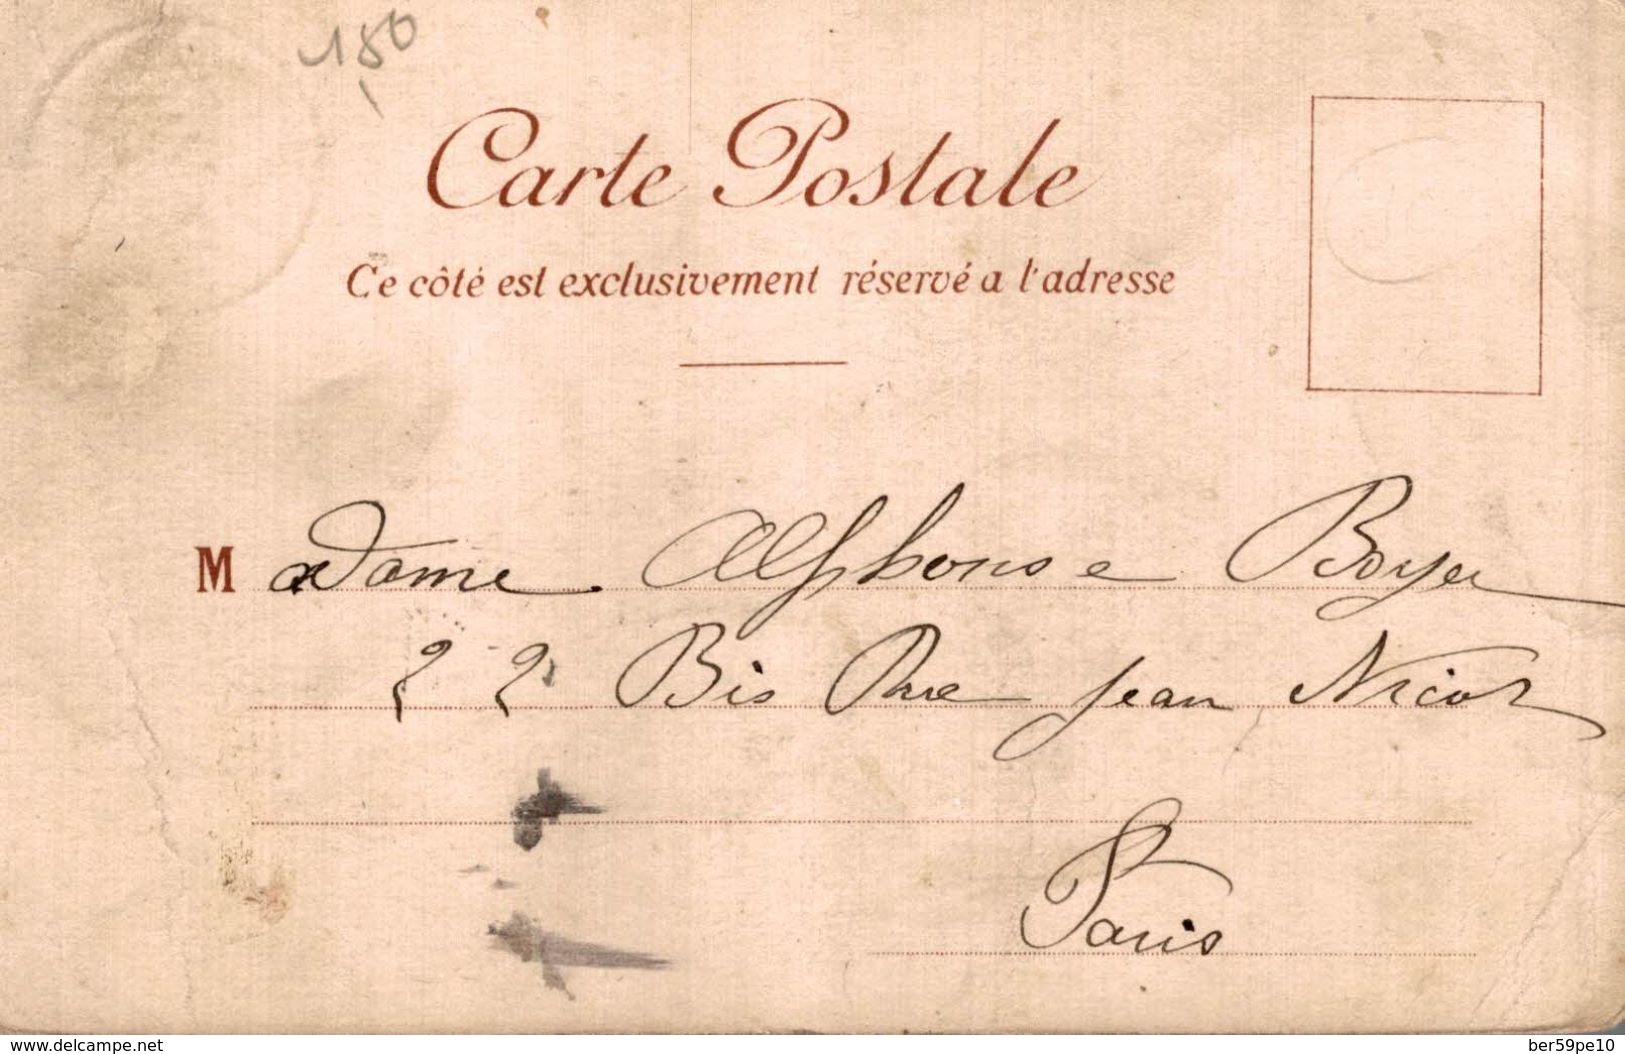 180
Carte Postale
Ce côté est exclusivement réservé a l'adresse
Madame Alphonse Boyer
22 Bis Rue Jean Nicot
Paris
www.delcampe.net
ber59pe10